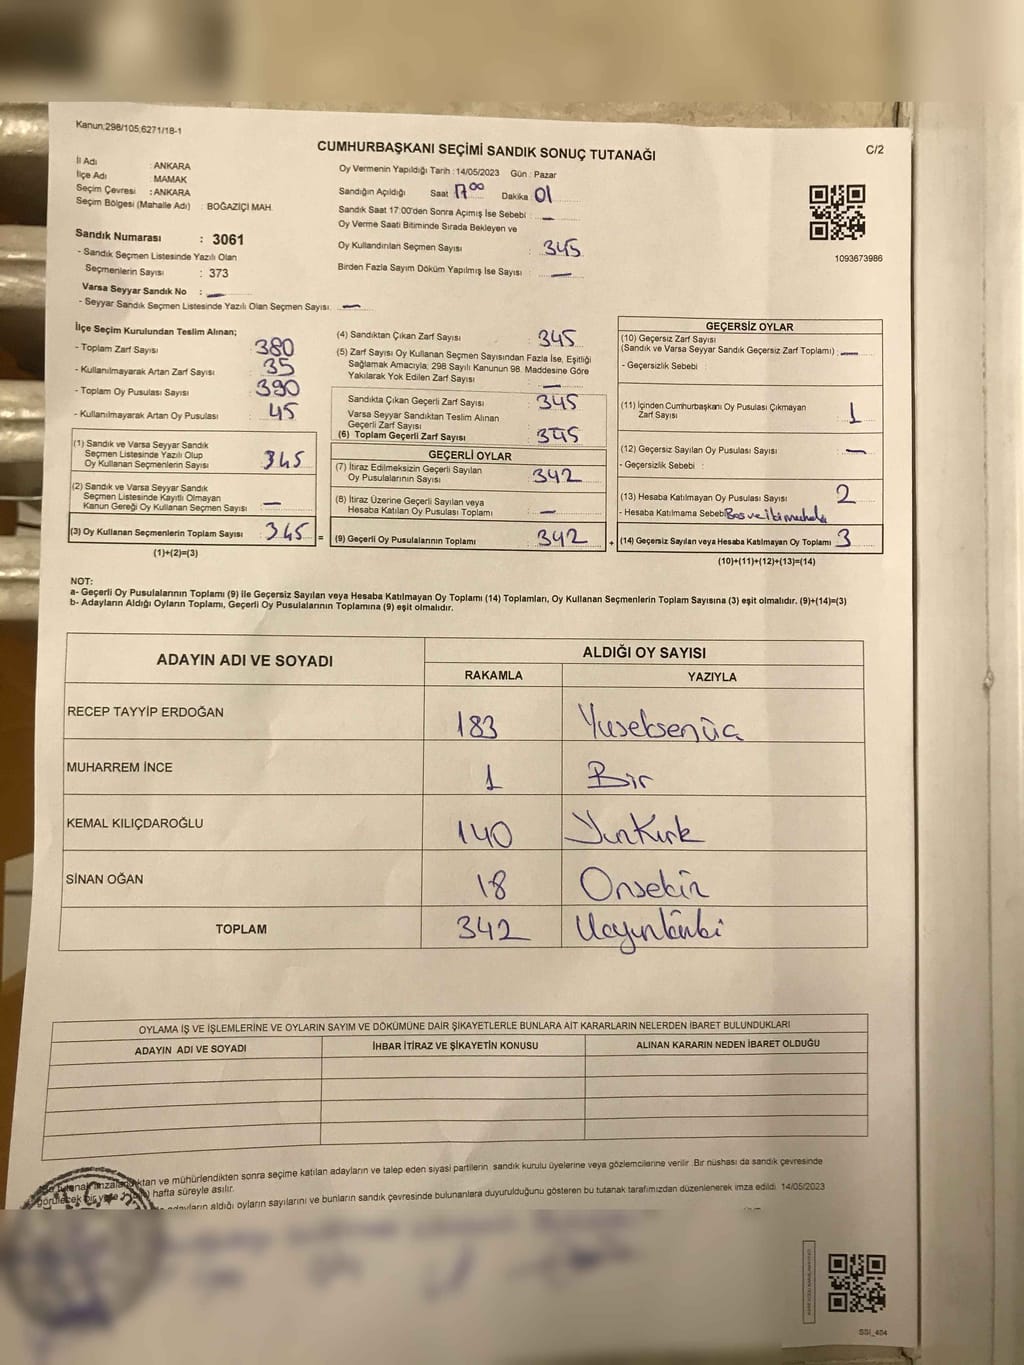 Kanun:298/105,6271/18-1
CUMHURBAŞKANI SEÇİMİ SANDIK SONUÇ TUTANAĞI
C/2
İl Adı : ANKARA
İlçe Adı : MAMAK
Seçim Çevresi : ANKARA
Seçim Bölgesi (Mahalle Adı) : BOĞAZİÇİ MAH.
Sandık Numarası : 3061
- Sandık Seçmen Listesinde Yazılı Olan
Seçmenlerin Sayısı : 373
Varsa Seyyar Sandık No : –
- Seyyar Sandık Seçmen Listesinde Yazılı Olan Seçmen Sayısı: –
Oy Vermenin Yapıldığı Tarih : 14/05/2023 Gün : Pazar
Sandığın Açıldığı Saat 17 00 Dakika : 01
Sandık Saat 17:00'den Sonra Açımış İse Sebebi : –
Oy Verme Saati Bitiminde Sırada Bekleyen ve
Oy Kullandırılan Seçmen Sayısı : 345
Birden Fazla Sayım Döküm Yapılmış İse Sayısı : –
1093673986
İlçe Seçim Kurulundan Teslim Alınan;
- Toplam Zarf Sayısı : 380
- Kullanılmayarak Artan Zarf Sayısı : 35
- Toplam Oy Pusulası Sayısı : 390
- Kullanılmayarak Artan Oy Pusulası : 45
(1) Sandık ve Varsa Seyyar Sandık
Seçmen Listesinde Yazılı Olup
Oy Kullanan Seçmenlerin Sayısı : 345
(2) Sandık ve Varsa Seyyar Sandık
Seçmen Listesinde Kayıtlı Olmayan
Kanun Gereği Oy Kullanan Seçmen Sayısı : –
(3) Oy Kullanan Seçmenlerin Toplam Sayısı : 345 =
(1)+(2)=(3)
(4) Sandıktan Çıkan Zarf Sayısı : 345
(5) Zarf Sayısı Oy Kullanan Seçmen Sayısından Fazla İse, Eşitliği
Sağlamak Amacıyla; 298 Sayılı Kanunun 98. Maddesine Göre
Yakılarak Yok Edilen Zarf Sayısı : –
Sandıkta Çıkan Geçerli Zarf Sayısı : 345
Varsa Seyyar Sandıktan Teslim Alınan
Geçerli Zarf Sayısı :
(6) Toplam Geçerli Zarf Sayısı : 345
GEÇERLİ OYLAR
(7) İtiraz Edilmeksizin Geçerli Sayılan
Oy Pusulalarının Sayısı : 342
(8) İtiraz Üzerine Geçerli Sayılan veya
Hesaba Katılan Oy Pusulası Toplamı : –
(9) Geçerli Oy Pusulalarının Toplamı : 342 +
GEÇERSİZ OYLAR
(10) Geçersiz Zarf Sayısı
(Sandık ve Varsa Seyyar Sandık Geçersiz Zarf Toplamı) : –
- Geçersizlik Sebebi :
(11) İçinden Cumhurbaşkanı Oy Pusulası Çıkmayan
Zarf Sayısı : 1
(12) Geçersiz Sayılan Oy Pusulası Sayısı : –
- Geçersizlik Sebebi :
(13) Hesaba Katılmayan Oy Pusulası Sayısı : 2
- Hesaba Katılmama Sebebi:
(14) Geçersiz Sayılan veya Hesaba Katılmayan Oy Toplamı : 3
(10)+(11)+(12)+(13)=(14)
NOT:
a- Geçerli Oy Pusulalarının Toplamı (9) ile Geçersiz Sayılan veya Hesaba Katılmayan Oy Toplamı (14) Toplamları, Oy Kullanan Seçmenlerin Toplam Sayısına (3) eşit olmalıdır. (9)+(14)=(3)
b- Adayların Aldığı Oyların Toplamı, Geçerli Oy Pusulalarının Toplamına (9) eşit olmalıdır.
ADAYIN ADI VE SOYADI
ALDIĞI OY SAYISI
RAKAMLA YAZIYLA
RECEP TAYYİP ERDOĞAN 183 Yüzseksenüç
MUHARREM İNCE 1 Bir
KEMAL KILIÇDAROĞLU 140 Yüzkırk
SİNAN OĞAN 18 Onsekiz
TOPLAM 342 Üçyüzkırkiki
OYLAMA İŞ VE İŞLEMLERİNE VE OYLARIN SAYIM VE DÖKÜMÜNE DAİR ŞİKAYETLERLE BUNLARA AİT KARARLARIN NELERDEN İBARET BULUNDUKLARI
ADAYIN ADI VE SOYADI İHBAR İTİRAZ VE ŞİKAYETİN KONUSU ALINAN KARARIN NEDEN İBARET OLDUĞU
tutanak imzalandıktan ve mühürlendikten sonra seçime katılan adayların ve talep eden siyasi partilerin sandık kurulu üyelerine veya gözlemcilerine verilir. Bir nüshası da sandık çevresinde
görülecek bir yere hafta süreyle asılır.
adayların aldığı oyların sayılarını ve bunların sandık çevresinde bulunanlara duyurulduğunu gösteren bu tutanak tarafımızdan düzenlenerek imza edildi. 14/05/2023
SSİ_404